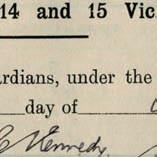 14 and 15 Vic
rdians, under the
day of
C Kennedy,